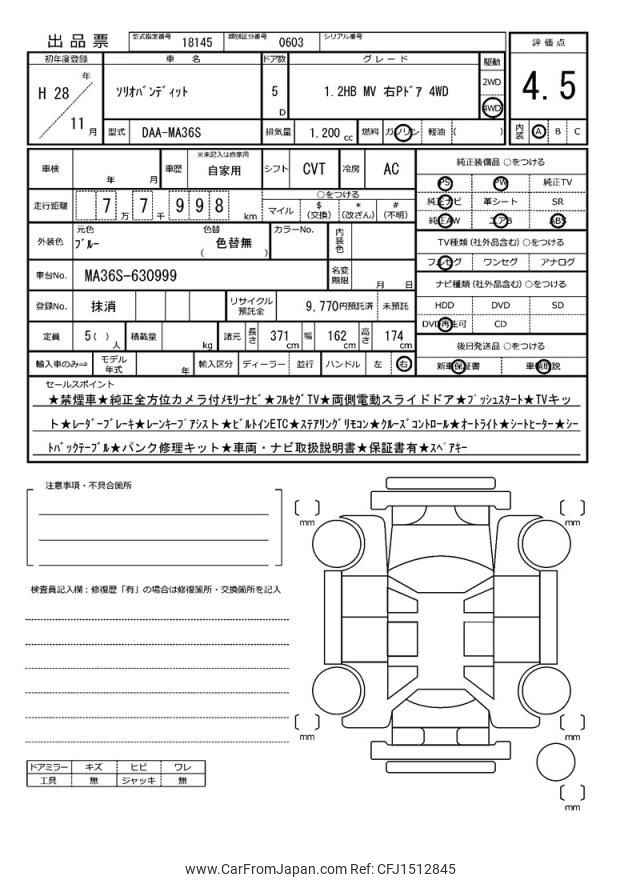 出品票
型式指定番号 18145 類別区分番号 0603 シリアル番号
初年度登録 車 名 ドア数 グレード 駆動 評価点
H 28 年 11 月 ソリオバンディット 5 D 1.2HB MV 右Pドア 4WD 2WD 4WD 4.5
型式 DAA-MA36S 排気量 1,200 cc 燃料 ガソリン 軽油 ( ) 内装 A B C
車検 年 月 車歴 ※未記入は自家用 自家用 シフト CVT 冷房 AC 純正装備品 ○をつける
PS PW 純正TV
走行距離 7 万 7 千 9 9 8 km ○をつける マイル $ (交換) * (改ざん) # (不明) 純正ナビ 革シート SR
純正AW エアB ABS
外装色 元色 ブルー 色替 ( 色替無 ) カラーNo. 内装色 TV種類 (社外品含む) ○をつける
フルセグ ワンセグ アナログ
車台No. MA36S-630999 名変期限 月 日 ナビ種類 (社外品含む) ○をつける
登録No. 抹消 リサイクル預託金 9,770円預託済 未預託 HDD DVD SD
DVD再生可 CD
定員 5( ) 人 積載量 kg 諸元 長さ 371 cm 幅 162 cm 高さ 174 cm 後日発送品 ○をつける
輸入車のみ⇒ モデル年式 年 輸入区分 ディーラー 並行 ハンドル 左 右 新車保証書 車載取説
セールスポイント
★禁煙車★純正全方位カメラ付メモリーナビ★フルセグTV★両側電動スライドドア★プッシュスタート★TVキッ
ト★レーダーブレーキ★レーンキープアシスト★ビルトインETC★ステアリングリモコン★クルーズコントロール★オートライト★シートヒーター★シー
トバックテーブル★パンク修理キット★車両・ナビ取扱説明書★保証書有★スペアキー
注意事項・不具合箇所
検査員記入欄：修復歴「有」の場合は修復箇所・交換箇所を記入
〔 〕 mm 〔 〕 mm
〔 〕 mm 〔 〕 mm
〔 〕 mm
ドアミラー キズ ヒビ ワレ
工具 無 ジャッキ 無
www.CarFromJapan.com Ref: CFJ1512845